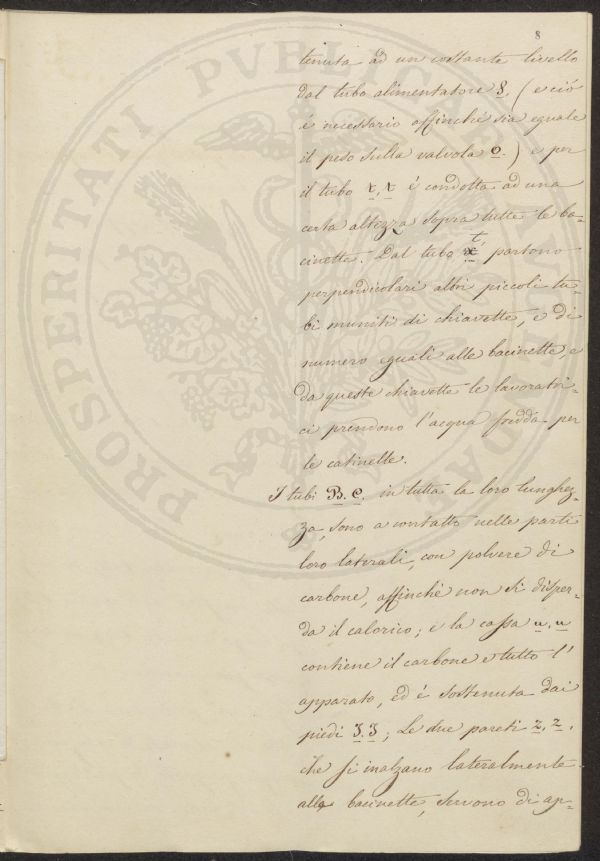 8
tenuta ad un costante livello
dal tubo alimentatore 8, (e ciò
é necessario affinchè sia eguale
il peso sulla valvola o.) e per
il tubo t, t é condotta ad una
certa altezza sopra tutte le ba-
cinette. Dal tubo t, partono
perpendicolari altri piccoli tu-
bi muniti di chiavette, e di
numero eguali alle bacinette, e
da queste chiavette le lavoratri-
ci prendono l'acqua fredda per
le catinelle.
I tubi B. C. in tutta la loro lunghez-
za, sono a contatto nelle parti
loro laterali, con polvere di
carbone, affinchè non si disper-
da il calorico; e la cassa u, u
contiene il carbone e tutto l'
apparato, ed é sostenuta dai
piedi 3. 3; Le due pareti z, z,
che si inalzano lateralmente
alle bacinette, servono di ap-
PROSPERITATI PVBLICAE